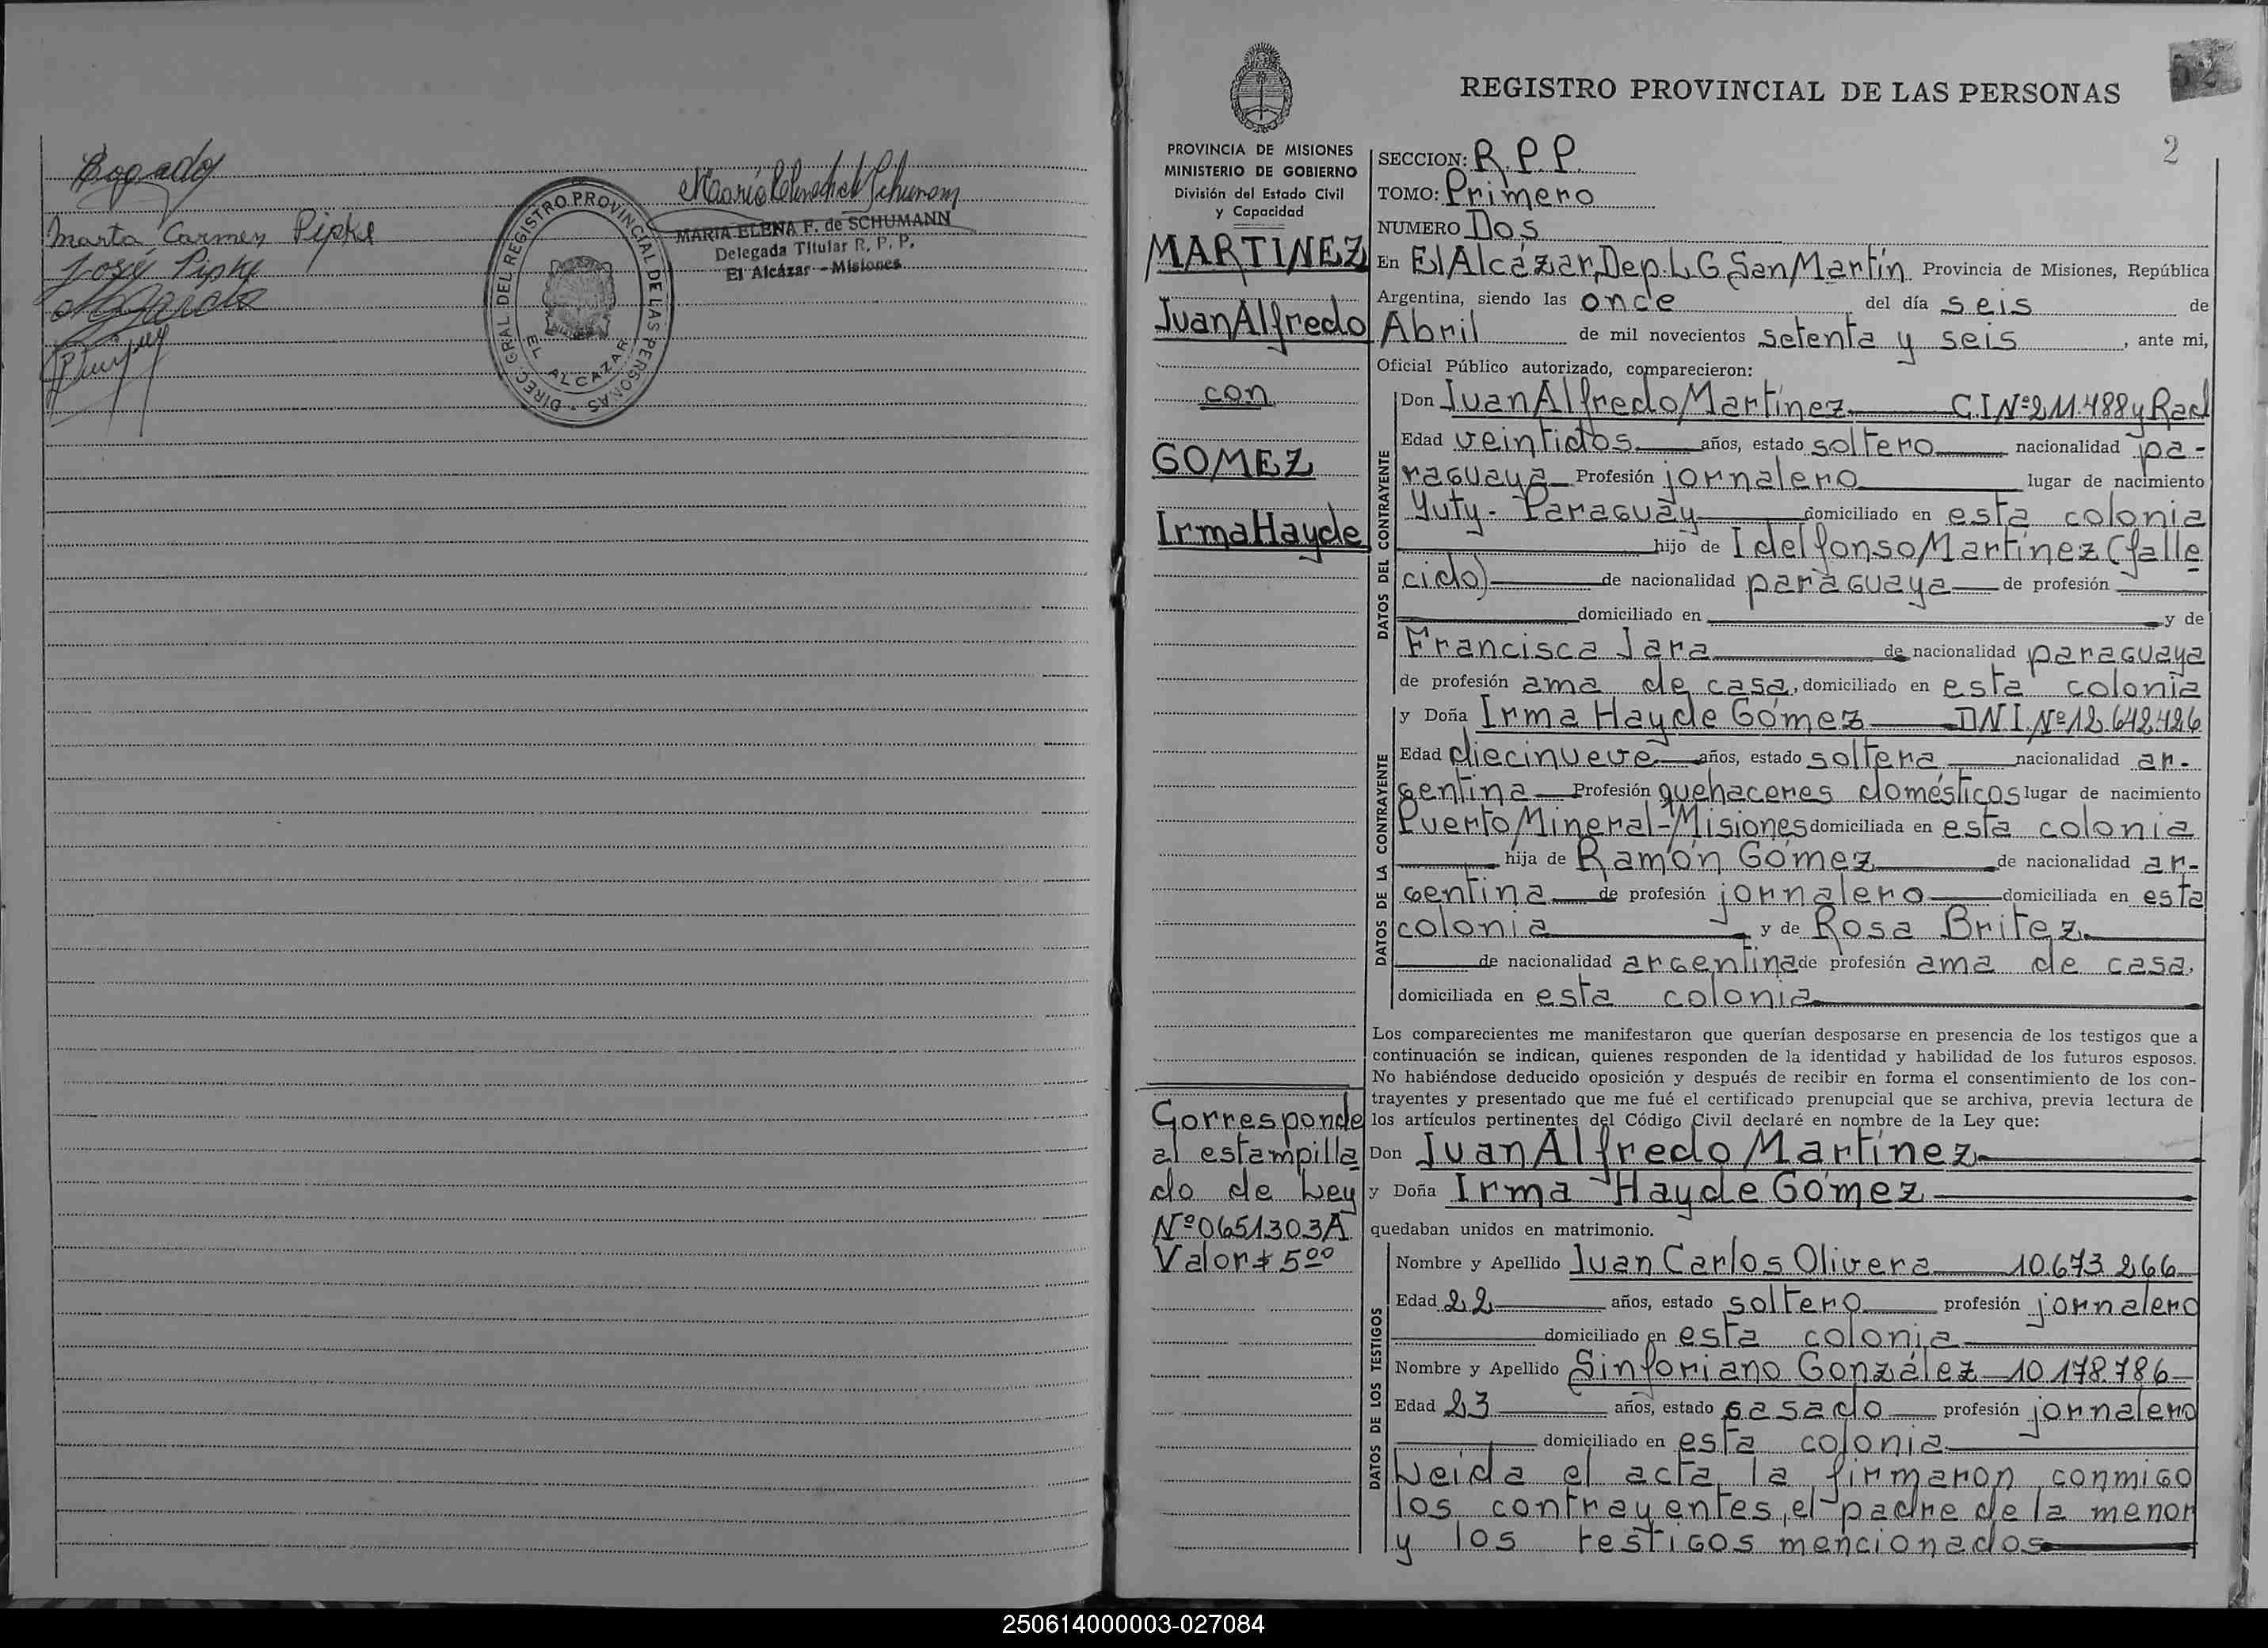 Bogado
Marta Carmen Pipke
José Pipke
DIREC. GRAL DEL REGISTRO PROVINCIAL DE LAS PERSONAS -
EL ALCAZAR
MARIA ELENA F. de SCHUMANN
Delegada Titular R. P. P.
El Alcázar - Misiones
52
REGISTRO PROVINCIAL DE LAS PERSONAS
2
PROVINCIA DE MISIONES
MINISTERIO DE GOBIERNO
División del Estado Civil
y Capacidad
MARTINEZ
Juan Alfredo
con
GOMEZ
Irma Hayde
Corresponde
al estampilla
do de Ley
Nº 0651303A
Valor $ 5 00
SECCION: R.P.P.
TOMO: Primero
NUMERO Dos
En El Alcázar, Dep. L. G. San Martín Provincia de Misiones, República
Argentina, siendo las once del día seis de
Abril de mil novecientos setenta y seis, ante mi,
Oficial Público autorizado, comparecieron:
DATOS DEL CONTRAYENTE
Don Juan Alfredo Martínez C.I.Nº 211.488 y Rad
Edad veintidos años, estado soltero nacionalidad pa-
raguaya Profesión jornalero lugar de nacimiento
Yuty - Paraguay domiciliado en esta colonia
hijo de Idelfonso Martínez (falle
cido) de nacionalidad paraguaya de profesión
domiciliado en y de
Francisca Jara de nacionalidad paraguaya
de profesión ama de casa, domiciliado en esta colonia
DATOS DE LA CONTRAYENTE
y Doña Irma Hayde Gómez DNI. Nº 12.642.426
Edad diecinueve años, estado soltera nacionalidad ar-
gentina Profesión quehaceres domésticos lugar de nacimiento
Puerto Mineral - Misiones domiciliada en esta colonia
hija de Ramón Gómez de nacionalidad ar-
gentina de profesión jornalero domiciliada en esta
colonia y de Rosa Britez
de nacionalidad argentina de profesión ama de casa,
domiciliada en esta colonia
Los comparecientes me manifestaron que querían desposarse en presencia de los testigos que a
continuación se indican, quienes responden de la identidad y habilidad de los futuros esposos.
No habiéndose deducido oposición y después de recibir en forma el consentimiento de los con-
trayentes y presentado que me fué el certificado prenupcial que se archiva, previa lectura de
los artículos pertinentes del Código Civil declaré en nombre de la Ley que:
Don Juan Alfredo Martínez
y Doña Irma Hayde Gómez
quedaban unidos en matrimonio.
DATOS DE LOS TESTIGOS
Nombre y Apellido Juan Carlos Olivera 10.673.266
Edad 22 años, estado soltero profesión jornalero
domiciliado en esta colonia
Nombre y Apellido Sinforiano González 10.178.786
Edad 23 años, estado casado profesión jornalero
domiciliado en esta colonia
Leida el acta la firmaron conmigo
los contrayentes, el padre de la menor
y los testigos mencionados
250614000003-027084